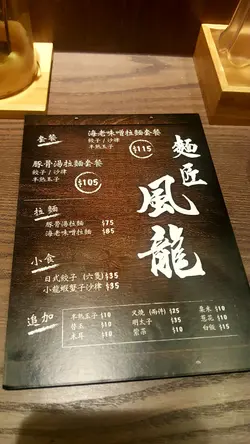 麵匠
風龍
套餐
海老味噌拉麵套餐
餃子/沙律
半熟玉子
$115
豚骨湯拉麵套餐
餃子/沙律
半熟玉子
$105
拉麵
豚骨湯拉麵 $75
海老味噌拉麵 $85
小食
日式餃子(六隻) $35
小龍蝦蟹子沙律 $35
追加
半熟玉子 $10
替玉 $10
木耳 $10
叉燒(兩件) $25
明太子 $35
紫菜 $10
粟米 $10
蔥花 $10
白飯 $15